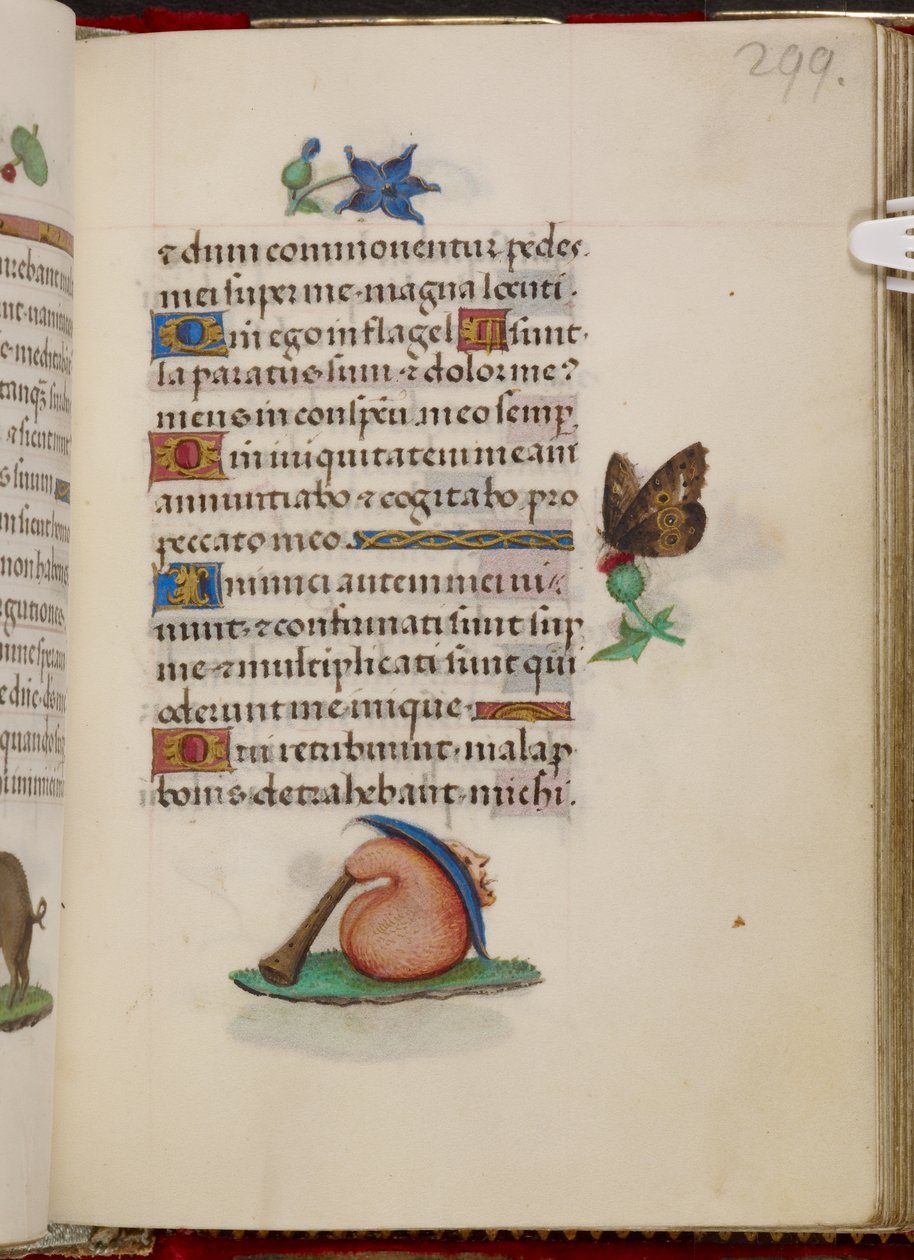 299.
⁊ dum commouentur pedes
mei super me·magna locuti.
Qm ego in flagel ¶ sunt·
la paratus sum ⁊ dolor me?
meus in conspcu meo semp.
Qm iniquitatem meam
annuntiabo ⁊ cogitabo pro
peccato meo.
Inimici autem mei ui⸗
uunt·⁊ confirmati sunt sup
me·⁊ multiplicati sunt qui
oderunt me·inique·
Qui retribuunt·mala p
bonis·detrahebant·michi.